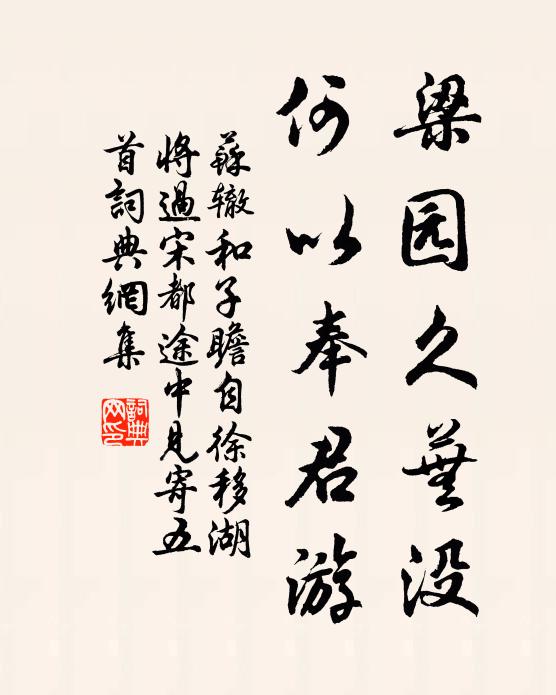 梁园久芜没
何以奉君游
蘇辙和子瞻自徐移湖
將過宋都途中見寄五
首詞典網集
詞典
网印